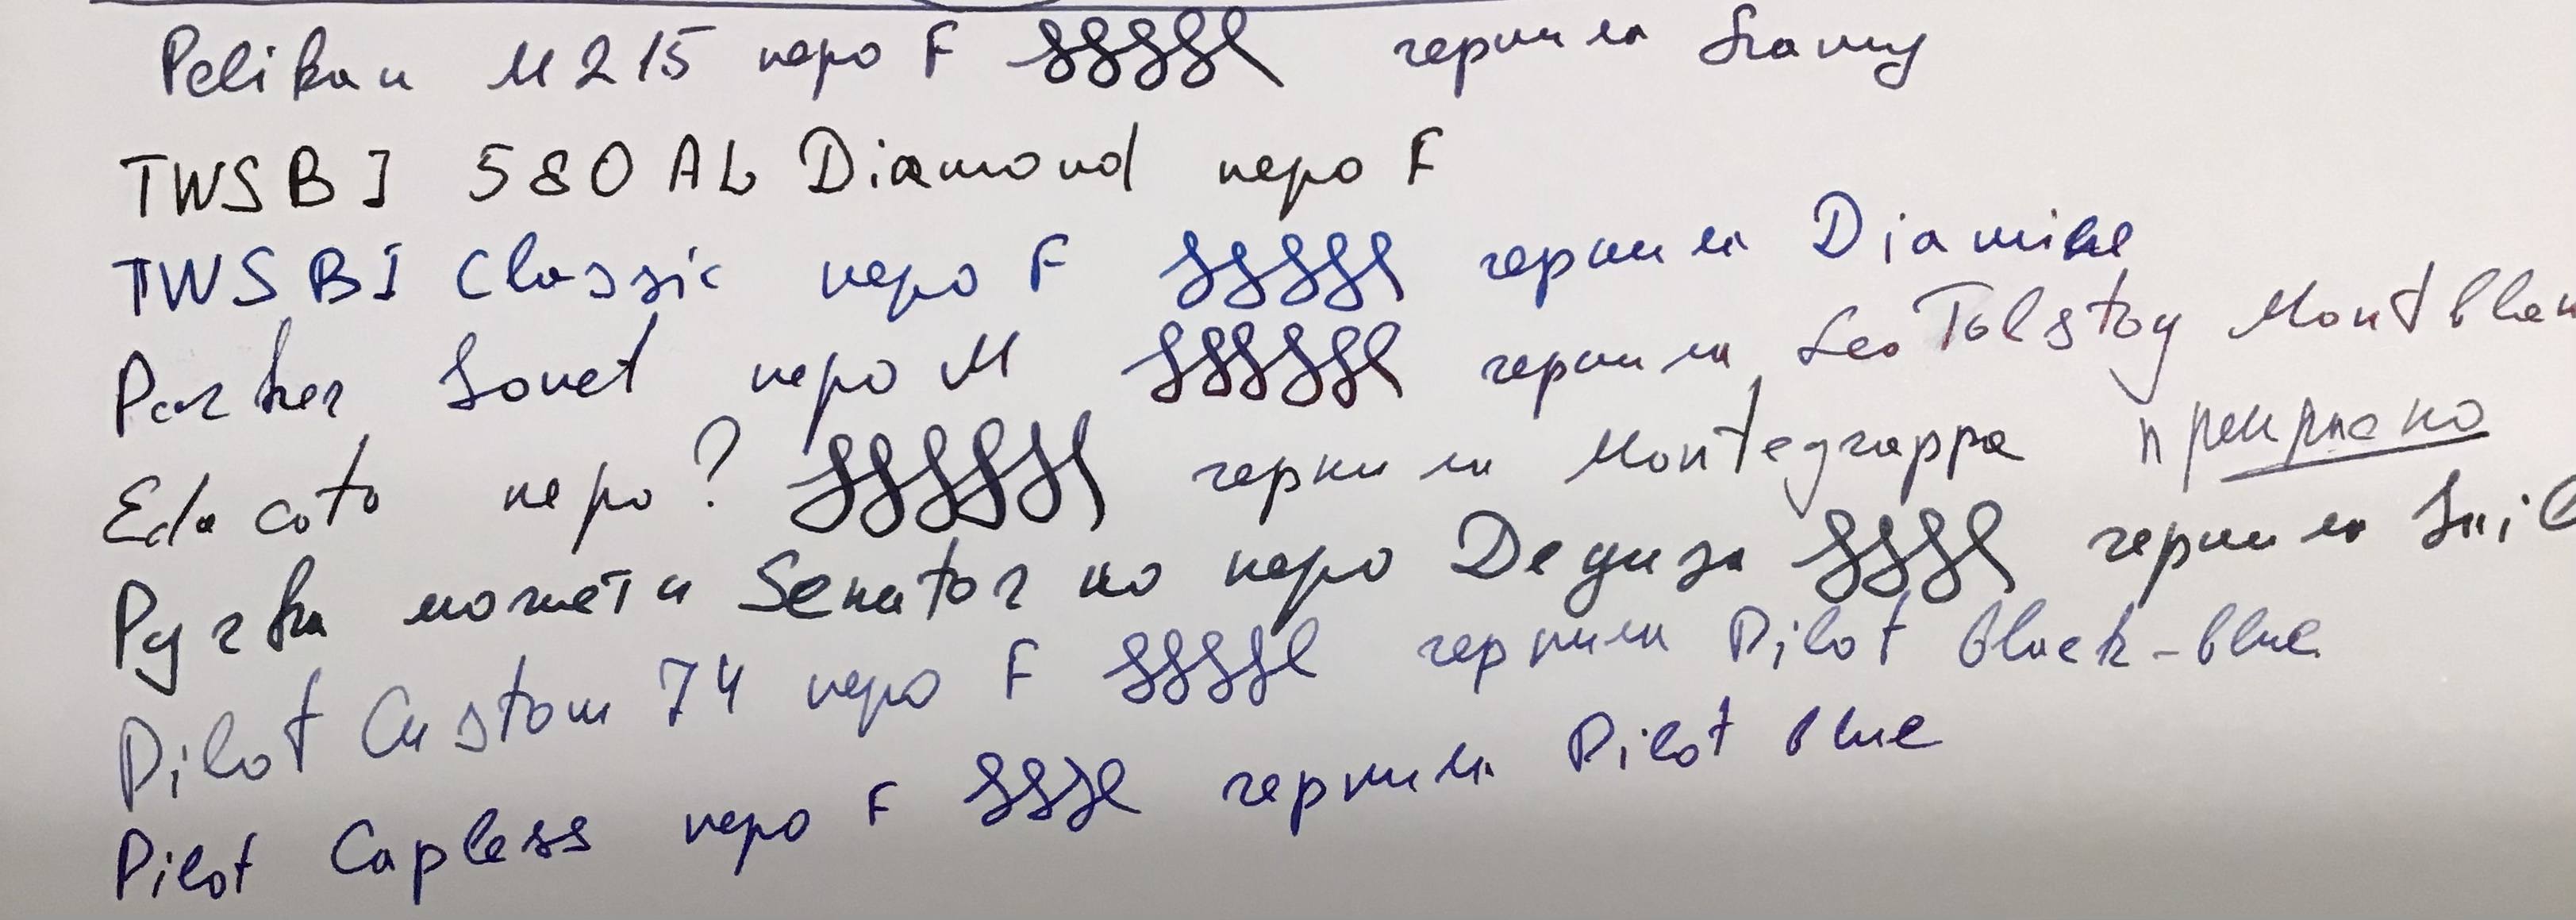 Pelikan M215 перо F чернила Lamy
TWSBI 580 AL Diamond перо F
TWSBI Classic перо F чернила Diamine
Parker Sonet перо M чернила Leo Tolstoy Montblan
Eda coto перо? чернила Montegrappa прекрасно
Ручка может и Senator но перо Дегуза чернила
Pilot Custom 74 перо F чернила Pilot black-blue
Pilot Capless перо F чернила Pilot blue